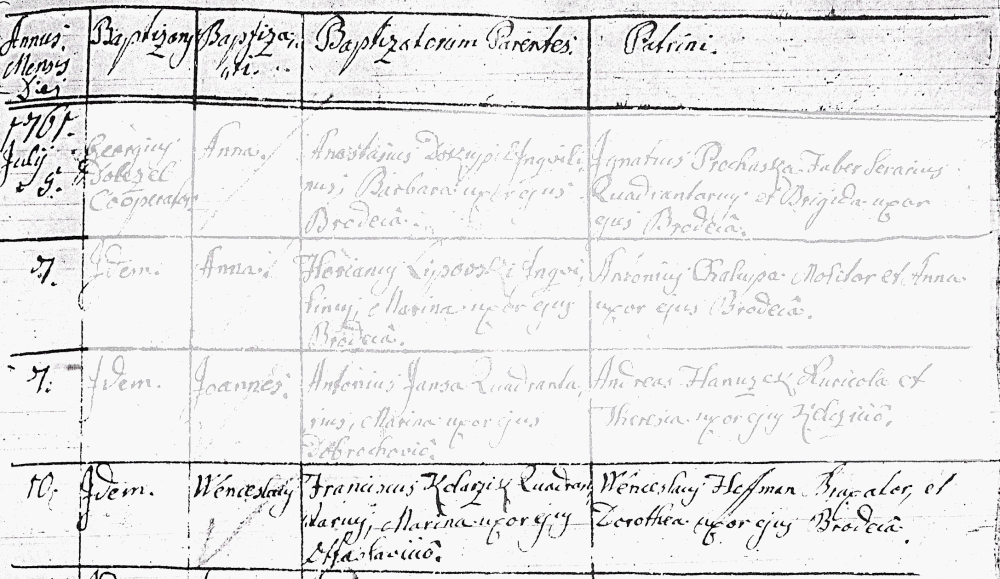 Annus. Mensis Dies
Baptizans
Baptizati.
Baptizatorum Parentes.
Patrini.
1761.
July
5.
Georgius
Cooperator
Anna.
Anastasius Inquili
nus, Barbara uxor ejus
Brodecia.
Ignatius Prochaska Faber Serarius
Quadrantarius et Brigida uxor
ejus Brodecia.
7.
Idem.
Anna.
Florianus Inqui
linus, Marina uxor ejus
Brodecia.
Antonius Chalupa Molitor et Anna
uxor ejus Brodecia.
7.
Idem.
Joannes.
Antonius Jansa Quadranta
rius, Marina uxor ejus
Andreas Ruricola et
Theresia uxor ejus
10.
Idem.
Wenceslaus
Franciscus Quadran
tarius, Marina uxor ejus
Wenceslaus Hoffman et
Dorothea uxor ejus Brodecia.